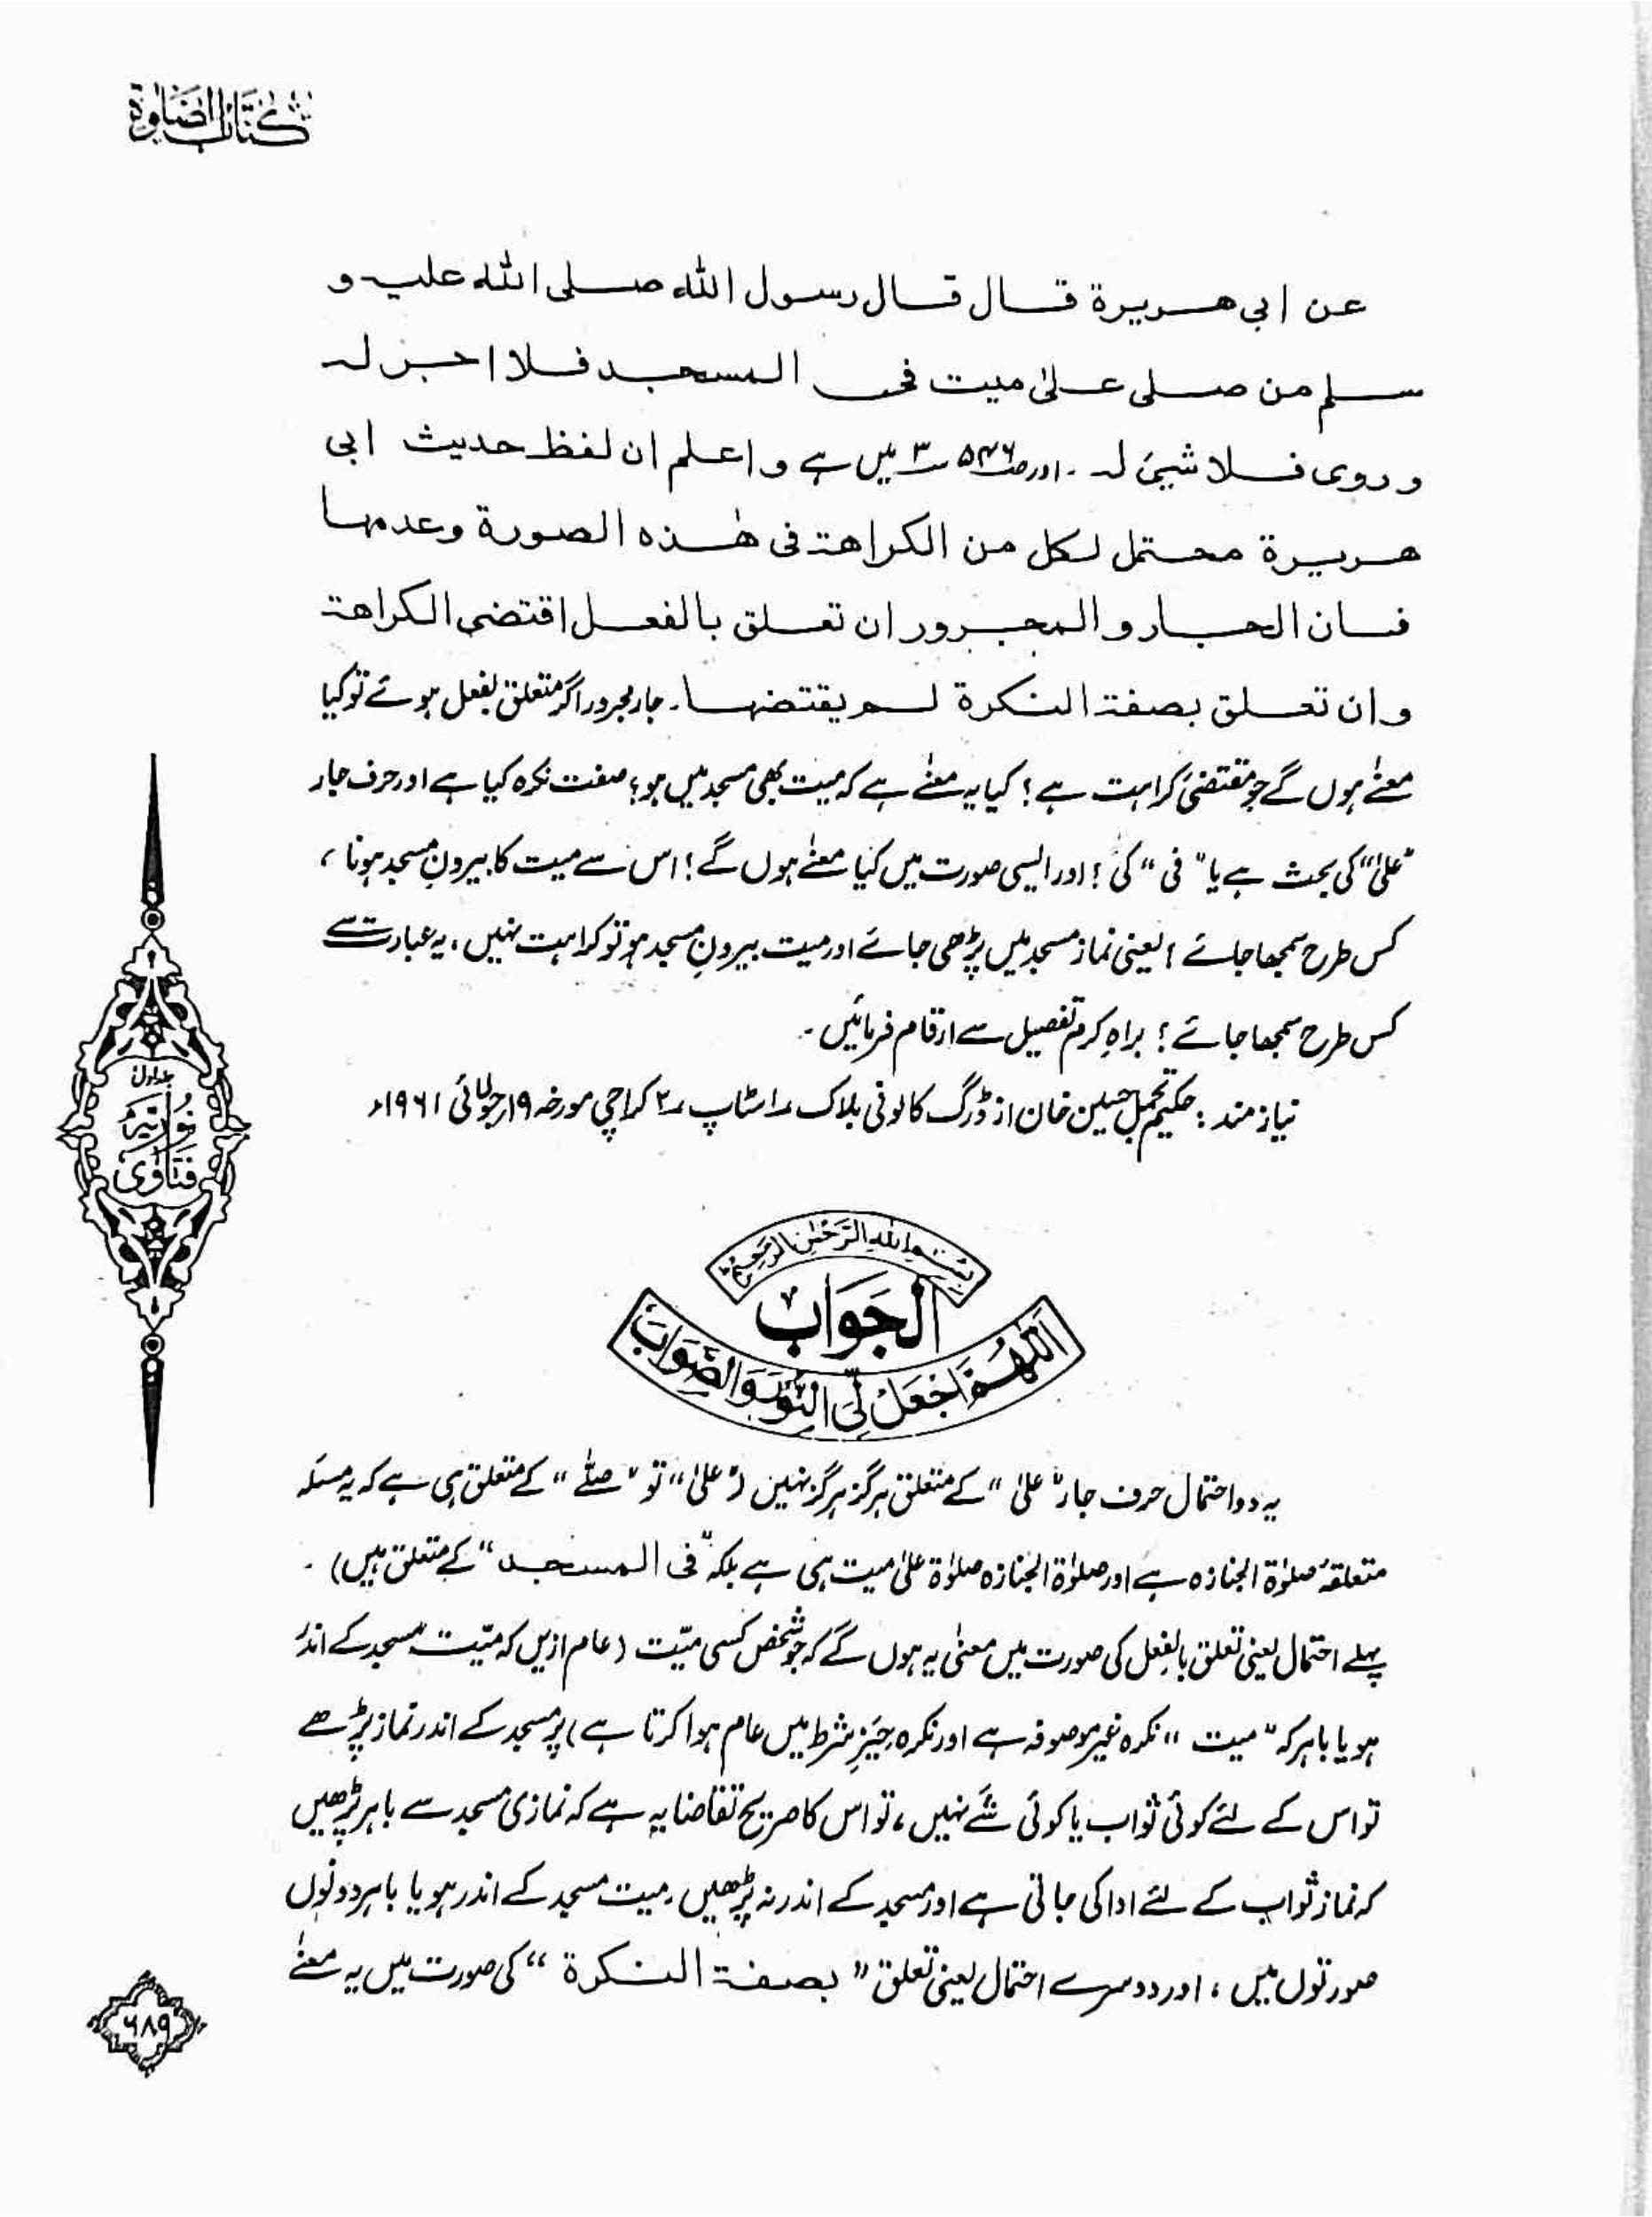 کتاب الصلوٰۃ
عن ابی هریرة قال قال رسول الله صلی الله علیه و
سلم من صلی علیٰ میت فی المسجد فلا اجر له
و روی فلا شیئ له ۔ اور ص۵۴۶ س۳ میں ہے و اعلم ان لفظ حدیث ابی
هریرة محتمل لکل من الکراهة فی هٰذه الصورة وعدمها
فان الجار و المجرور ان تعلق بالفعل اقتضی الکراهة
و ان تعلق بصفة النکرة لم یقتضها۔ جار مجرور اگر متعلق بفعل ہوئے تو کیا
معنے ہوں گے جو مقتضیٔ کراہت ہے؟ کیا یہ معنے ہے کہ میت بھی مسجد میں ہو؟ صفت نکرہ کیا ہے اور حرف جار
”علیٰ“ کی بحث ہے یا ”فی“ کی؟ اور ایسی صورت میں کیا معنے ہوں گے؟ اس سے میت کا بیرونِ مسجد ہونا،
کس طرح سمجھا جائے؟ یعنی نماز مسجد میں پڑھی جائے اور میت بیرونِ مسجد ہو تو کراہت نہیں، یہ عبارت سے
کس طرح سمجھا جائے؟ براہِ کرم تفصیل سے ارقام فرمائیں ۔
نیاز مند: حکیم تجمل حسین خان از ڈرگ کالونی بلاک ۱ اسٹاپ ۲ کراچی مورخہ ۱۹ جولائی ۱۹۶۱ء
جلد اول
فتاویٰ نوریہ
بسم الله الرحمٰن الرحیم
الجواب
اللهم اجعل لی النور والصواب
یہ دو احتمال حرف جار ”علیٰ“ کے متعلق ہرگز ہرگز نہیں (”علیٰ“ تو ”صلّے“ کے متعلق ہی ہے کہ یہ مسئلہ
متعلقۂ صلوٰۃ الجنازہ ہے اور صلوٰۃ الجنازہ صلوٰۃ علیٰ میت ہی ہے بلکہ ”فی المسجد“ کے متعلق ہیں) ۔
پہلے احتمال یعنی تعلق بالفعل کی صورت میں معنیٰ یہ ہوں گے کہ جو شخص کسی میّت (عام ازیں کہ میّت مسجد کے اندر
ہو یا باہر کہ ”میت“ نکرہ غیر موصوفہ ہے اور نکرہ حیّزِ شرط میں عام ہوا کرتا ہے) پر مسجد کے اندر نماز پڑھے
تو اس کے لئے کوئی ثواب یا کوئی شَے نہیں، تو اس کا صریح تقاضا یہ ہے کہ نمازی مسجد سے باہر پڑھیں
کہ نماز ثواب کے لئے ادا کی جاتی ہے اور مسجد کے اندر نہ پڑھیں، میت مسجد کے اندر ہو یا باہر دونوں
صورتوں میں، اور دوسرے احتمال یعنی تعلق ”بصفة النکرة“ کی صورت میں یہ معنے
۶۸۹